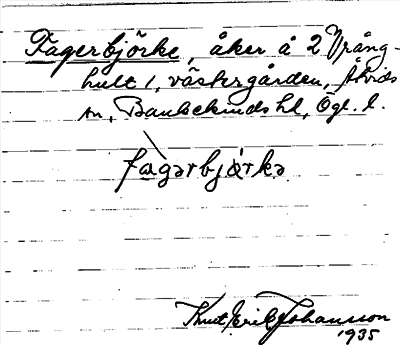 Fagerbjörke, åker å 2 Vrång-
hult 1, västergården, Åtvids
sn, Bankekinds hd, Ögl. l.
fàgərbjörkə
Knut Erik Johansson
1935